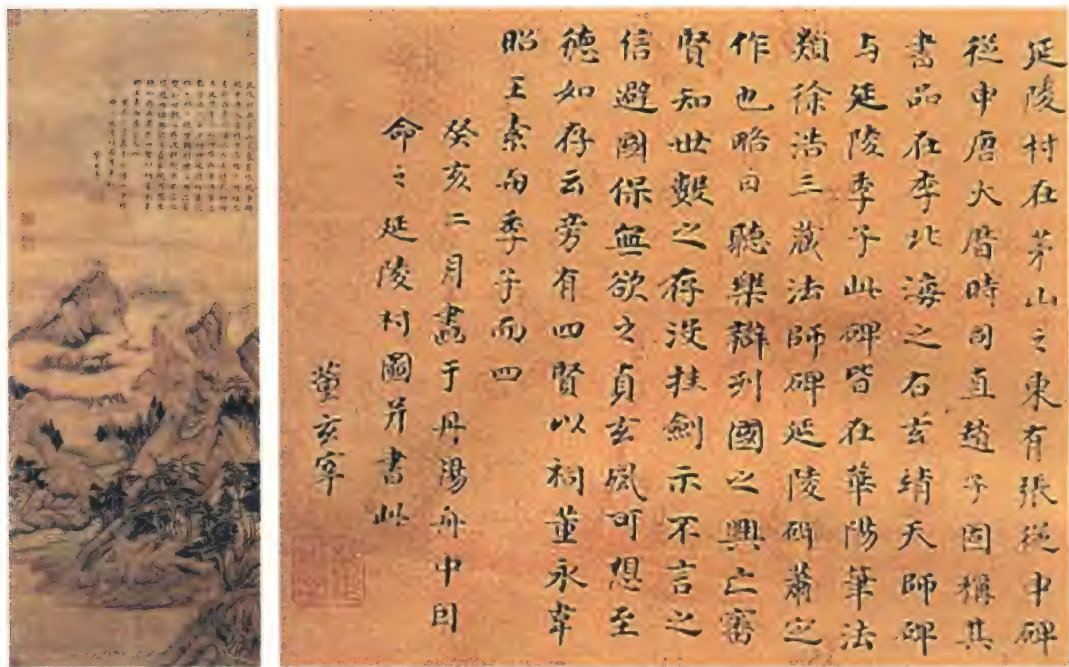 延陵村在茅山之東有張從申碑
從申唐大曆時司直趙子固稱其
書品在李北海之右玄靖天師碑
与延陵季子此碑皆在華陽筆法
類徐浩三藏法師碑延陵碑蕭定
作也略曰聽樂辯列國之興亡審
賢知世數之存沒挂劍示不言之
信避國保無欲之貞玄風可想至
德如存云旁有四賢以祠董永韋
昭王素而季子而四
癸亥二月畫于丹陽舟中因
命之延陵村圖并書此
董玄宰